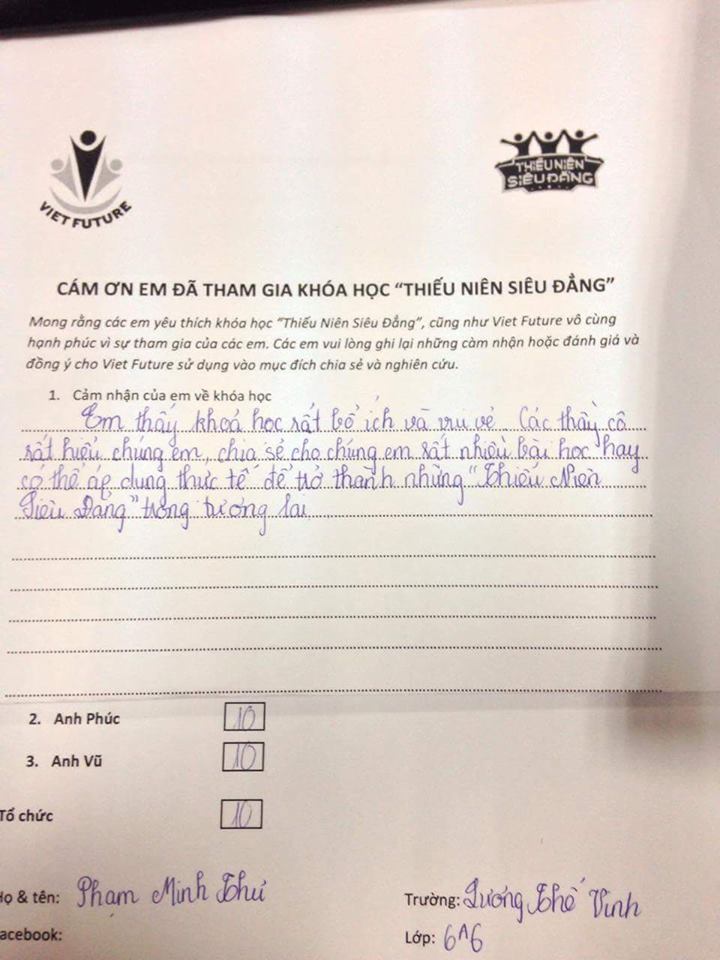 VIET FUTURE
THIẾU NIÊN
SIÊU ĐẲNG
CÁM ƠN EM ĐÃ THAM GIA KHÓA HỌC “THIẾU NIÊN SIÊU ĐẲNG”
Mong rằng các em yêu thích khóa học “Thiếu Niên Siêu Đẳng”, cũng như Viet Future vô cùng
hạnh phúc vì sự tham gia của các em. Các em vui lòng ghi lại những cảm nhận hoặc đánh giá và
đồng ý cho Viet Future sử dụng vào mục đích chia sẻ và nghiên cứu.
1. Cảm nhận của em về khóa học
Em thấy khoá học rất bổ ích và vui vẻ Các thầy cô
rất hiểu chúng em, chia sẻ cho chúng em rất nhiều bài học hay
có thể áp dụng thực tế để trở thành những “Thiếu Niên
Siêu Đẳng” trong tương lai
2. Anh Phúc 10
3. Anh Vũ 10
Tổ chức 10
Họ & tên: Phạm Minh Thư
Trường: Lương Thế Vinh
acebook:
Lớp: 6^6